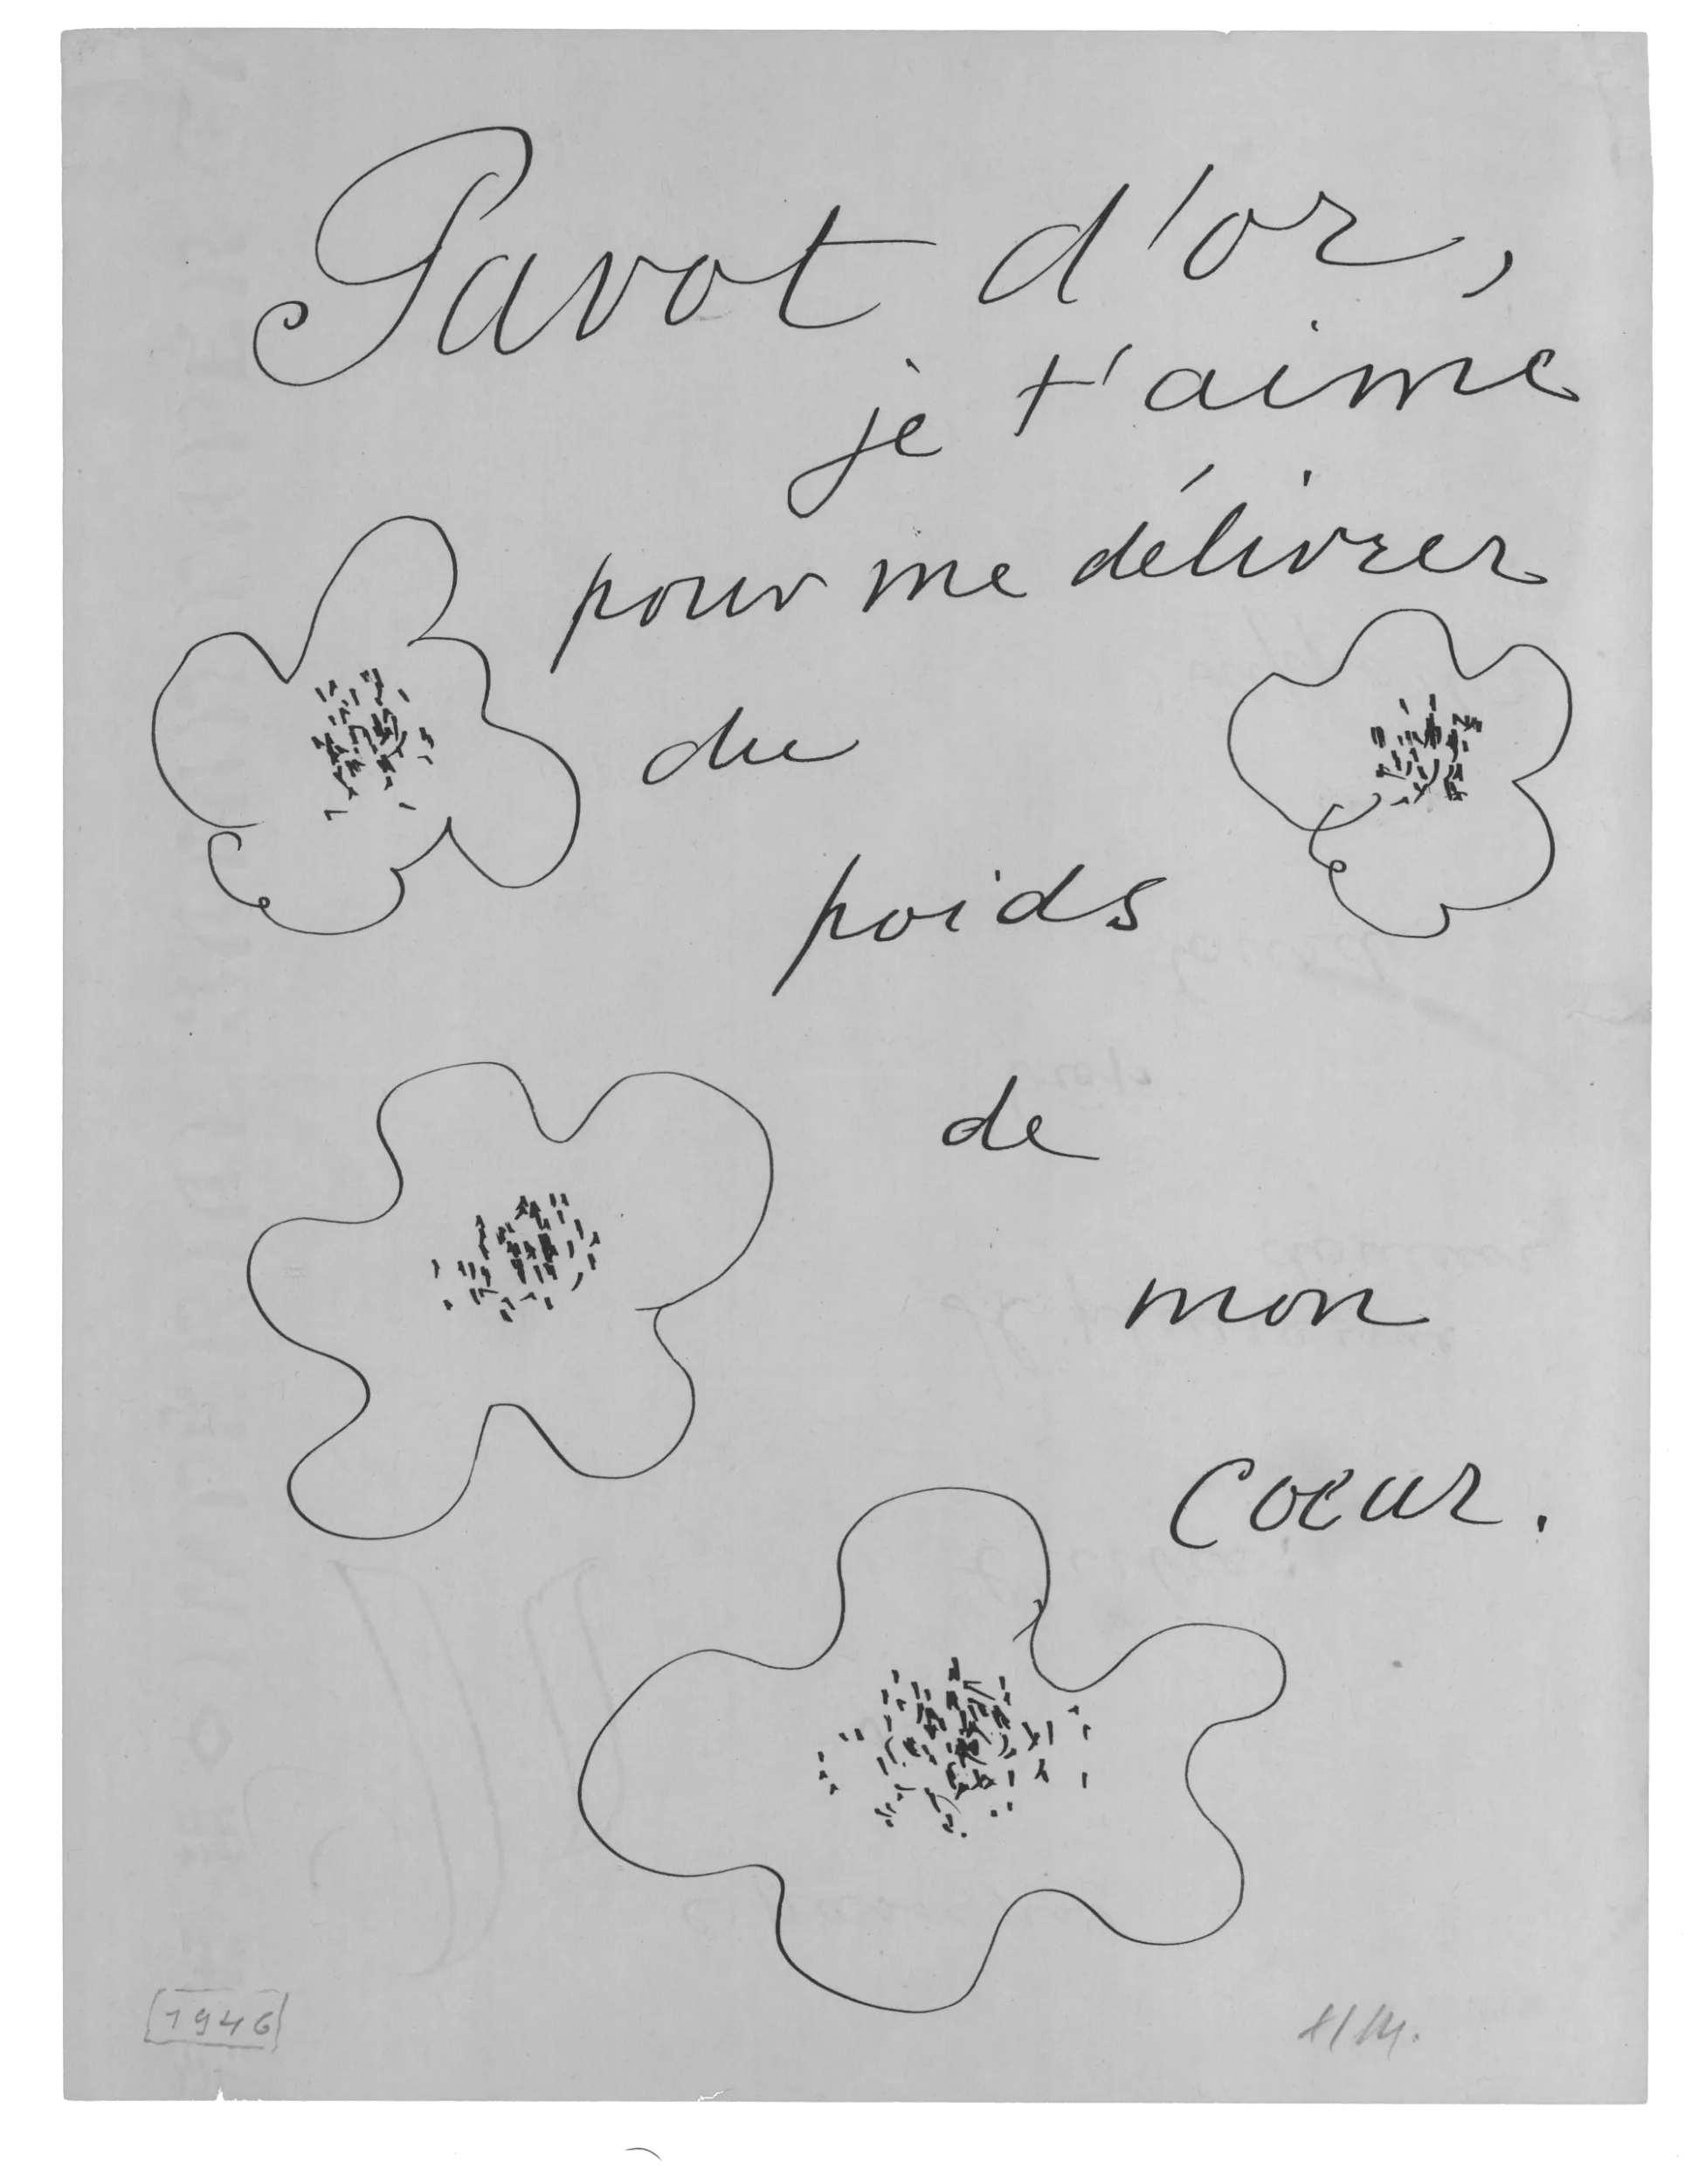 Pavot d'or,
je t'aime
pour me délivrer
du
poids
de
mon
coeur.
[1946]
HM.